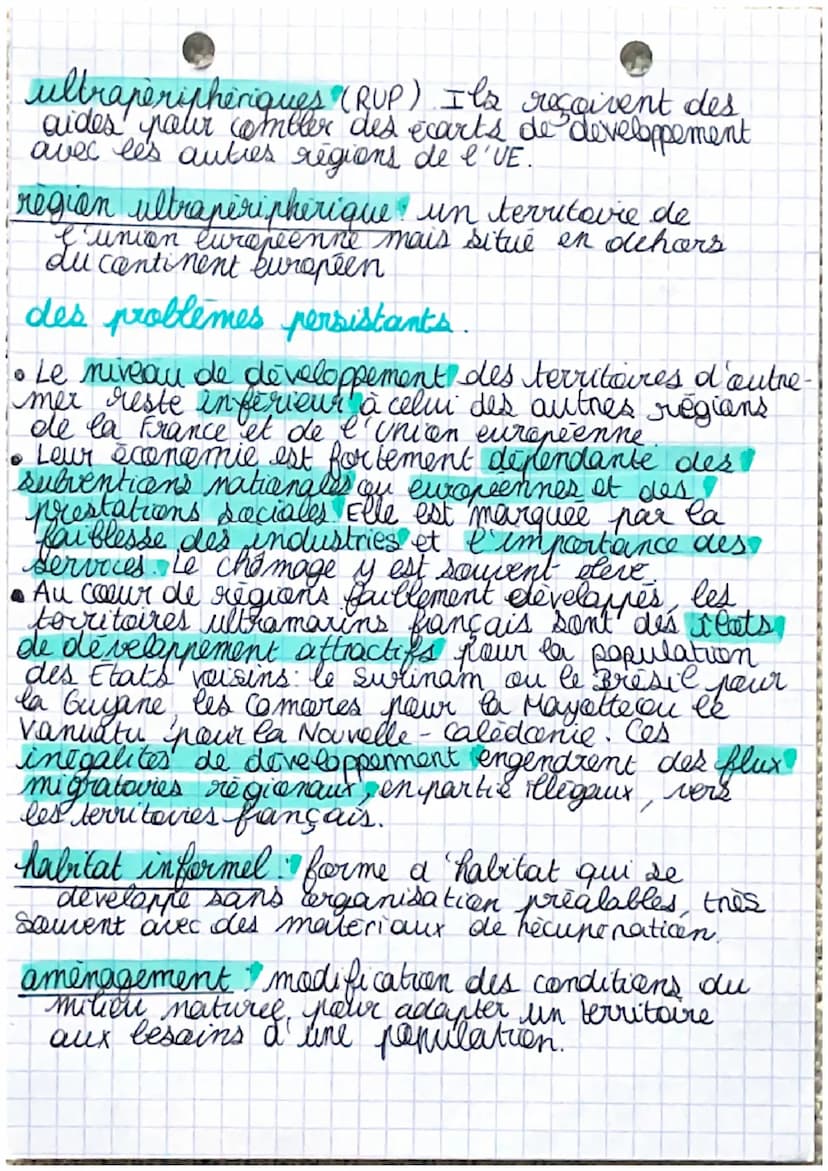 ultrapériphériques (RUP). Ils reçoivent des
aides pour combler des écarts de développement
avec les autres régions de l'UE.
région ultrapériphérique : un territoire de
l'union européenne mais situé en dehors
du continent européen
des problèmes persistants.
• Le niveau de développement des territoires d'outre-
mer reste inférieur à celui des autres régions
de la France et de l'Union européenne.
• Leur économie est fortement dépendante des
subventions nationales ou européennes et des
prestations sociales. Elle est marquée par la
faiblesse des industries et l'importance des
services. Le chômage y est souvent élevé.
• Au cœur de régions faiblement développés, les
territoires ultramarins français sont des îlots
de développement attractifs pour la population
des États voisins : le Surinam ou le Brésil pour
la Guyane, les Comores pour la Mayotte ou le
Vanuatu pour la Nouvelle-Calédonie. Ces
inégalités de développement engendrent des flux
migratoires régionaux, en partie illégaux, vers
les territoires français.
habitat informel : forme d'habitat qui se
développe sans organisation préalables, très
souvent avec des matériaux de récupération.
aménagement : modification des conditions du
milieu naturel pour adapter un territoire
aux besoins d'une population.